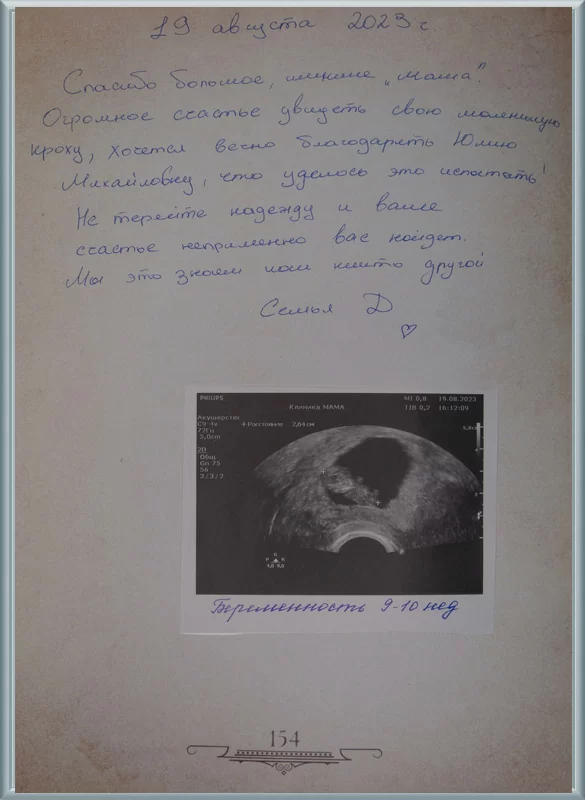 19 августа 2023 г.
Спасибо большое, клинике „Мама".
Огромное счастье увидеть свою маленькую
кроху, хочется вечно благодарить Юлию
Михайловну, что удалось это испытать!
Не теряйте надежду и ваше
счастье неприменно вас найдет.
Мы это знаем как никто другой
Семья Д
PHILIPS
Клиника МАМА
MI 0,8 19.08.2023
TIB 0,2 16:12:09
Акушерство
C9-4v
72Гц
5,0см
+Расстояние 2,64 см
2D
Общ
Gn 75
56
3/3/2
Беременность 9-10 нед
154